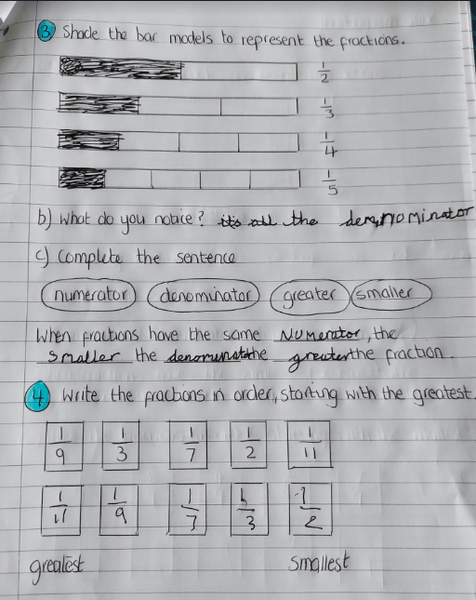 3 Shade the bar models to represent the fractions.
1/2
1/3
1/4
1/5
b) What do you notice? it's all the denominator
c) Complete the sentence
numerator denominator greater smaller
When fractions have the same Numerator, the
Smaller the denominator the greater the fraction.
4 Write the fractions in order, starting with the greatest.
1/9 1/3 1/7 1/2 1/11
1/11 1/9 1/7 1/3 1/2
greatest smallest